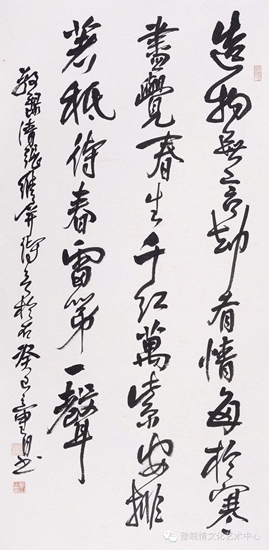 造物無言却有情每於寒
盡覺春生千紅萬紫安排
著祇待春雷第一聲
敬錄清張維屏詩 癸巳
文化艺术中心